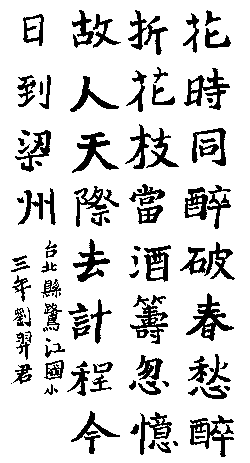 花時同醉破春愁醉
折花枝當酒籌忽憶
故人天際去計程今
日到梁州
台北縣鷺江國小
三年劉羿君